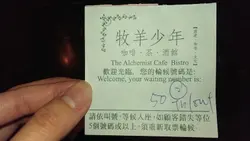 牧羊少年
咖啡‧茶‧酒館
The Alchemist Cafe Bistro
歡迎光臨, 您的輪候號碼是:
Welcome, your waiting number is:
50
請依叫號, 等候入座, 如顧客錯失等位
5個號碼或以上, 請重新取票輪候